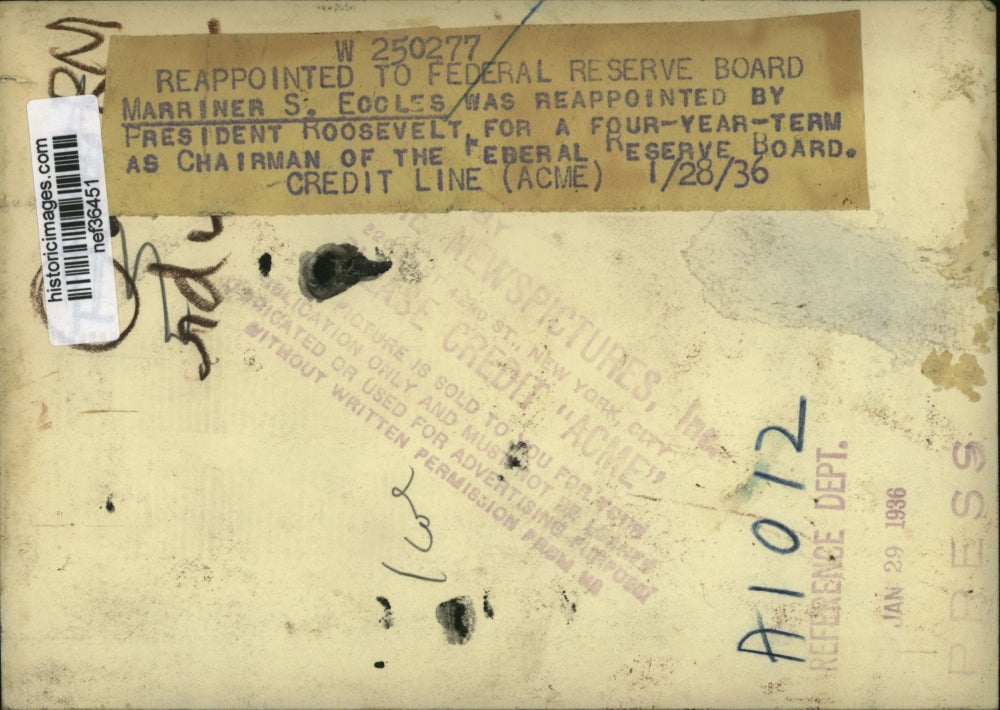 W 250277
REAPPOINTED TO FEDERAL RESERVE BOARD
MARRINER S. ECCLES WAS REAPPOINTED BY
PRESIDENT ROOSEVELT, FOR A FOUR-YEAR-TERM
AS CHAIRMAN OF THE FEBERAL RESERVE BOARD.
CREDIT LINE (ACME) 1/28/36
historicimages.com
nef36451
BY
ACME NEWSPICTURES, Inc.
220 EAST 42ND ST. NEW YORK CITY
PLEASE CREDIT "ACME"
PICTURE IS SOLD TO YOU FOR YOUR
PUBLICATION ONLY AND MUST NOT BE LOANED
SYNDICATED OR USED FOR ADVERTISING PURPOSES
WITHOUT WRITTEN PERMISSION FROM US
A1012
REFERENCE DEPT.
JAN 29 1936
PRESS